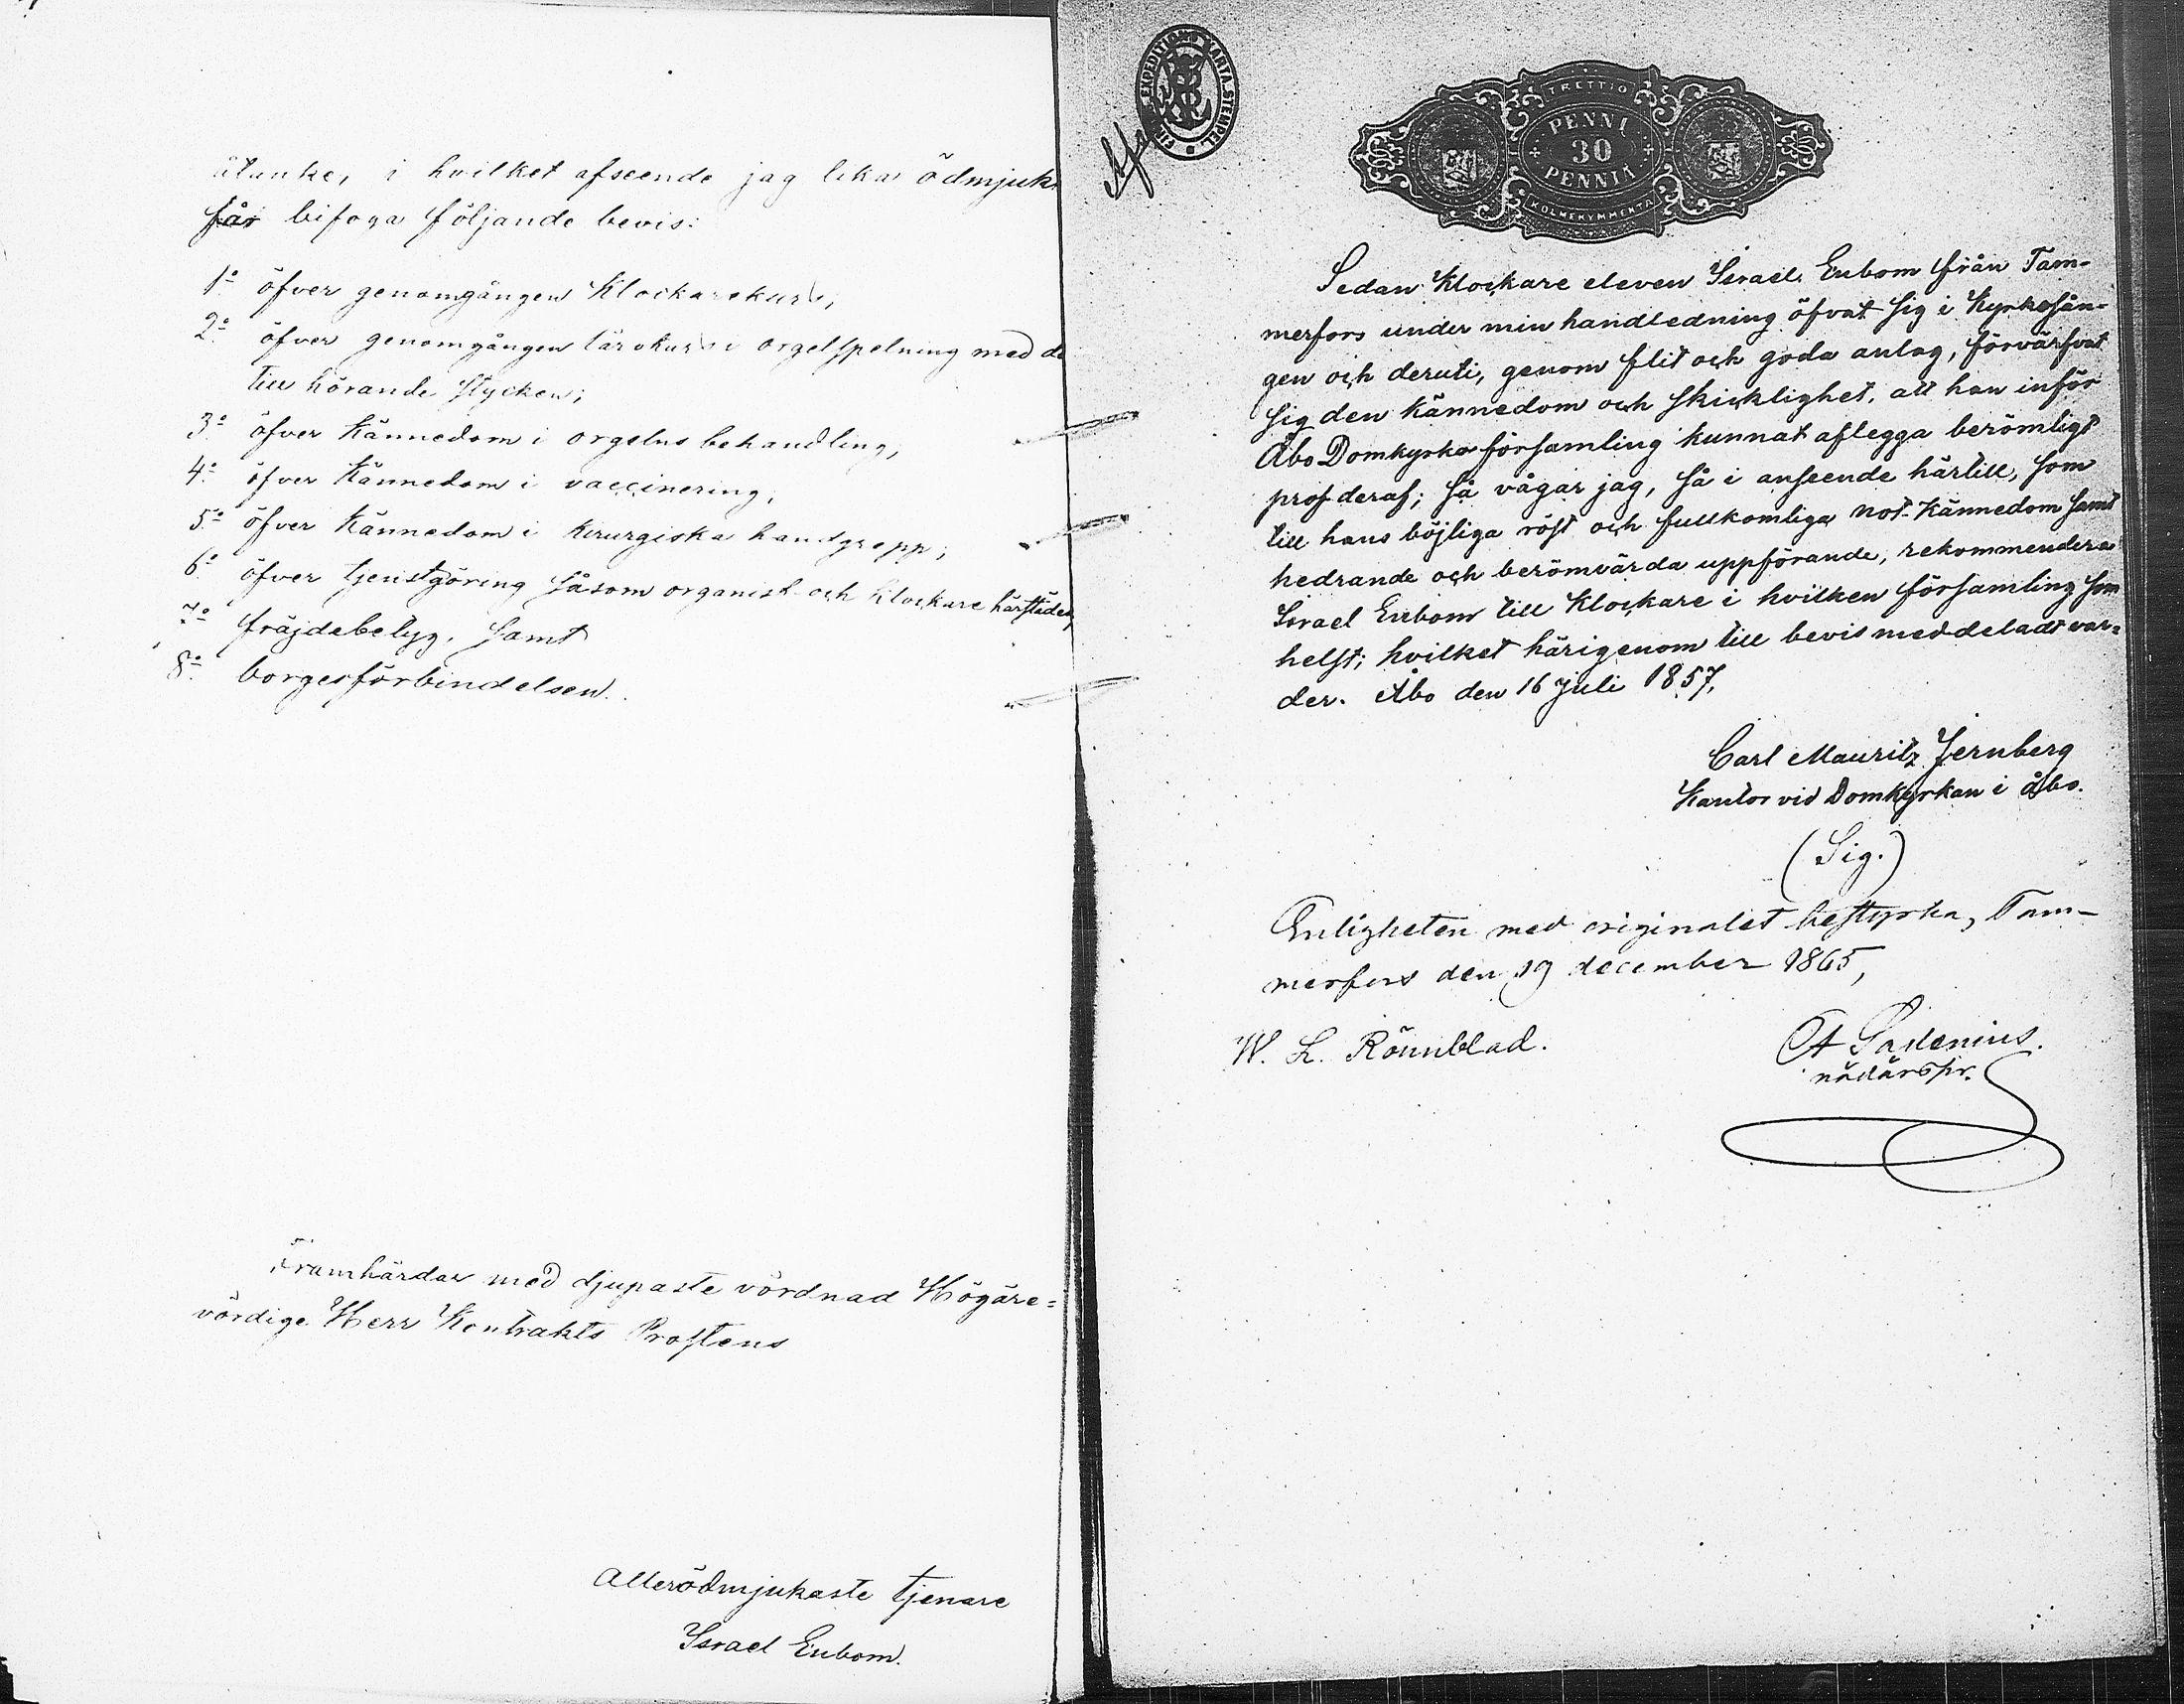 åtanke, i hvilket afseende jag lika ödmjuk
får bifoga följande bevis:
1:o öfver genomgången Klockarekurs,
2:o öfver genomgången lärokurs i orgelspelning med de
till hörande stycken;
3:o öfver Kännedom i orgelns behandling,
4:o öfver Kännedom i vaccinering,
5:o öfver Kännedom i kirurgiska handgrepp;
6:o öfver tjenstgöring såsom organist och klockare härstädes,
7:o fräjdebetyg, samt
8:o borgesförbindelsen.
Framhärdar med djupaste vördnad Högäre=
vördige Herr Kontrakts Prostens
Allerödmjukaste tjenare
Israel Enbom.
EXPEDITIONS KARTA STEMPEL
TRETTIO
PENNI
30
PENNIÄ
KOLMEKYMMENTÄ
Sedan Klockare eleven Israel Enbom från Tam-
merfors under min handledning öfvat sig i Kyrkosån-
gen och deruti, genom flit och goda anlag, förvärfvat
sig den kännedom och skicklighet, att han inför
Åbo Domkyrkoförsamling kunnat aflegga berömligt
prof deraf; så vågar jag, så i anseende härtill, som
till hans böjliga röst och fullkomliga not-kännedom samt
hedrande och berömvärda uppförande, rekommendera
Israel Enbom till Klockare i hvilken församling som
helst; hvilket härigenom till bevis meddeladt var=
der. Åbo den 16 Juli 1857,
Carl Mauritz Jernberg
Kantor vid Domkyrkan i Åbo.
(Sig.)
Enligheten med originalet bestyrka, Tam-
merfors den 19 december 1865,
W. L. Rönnblad.
A Sadenius.
nådårspr.